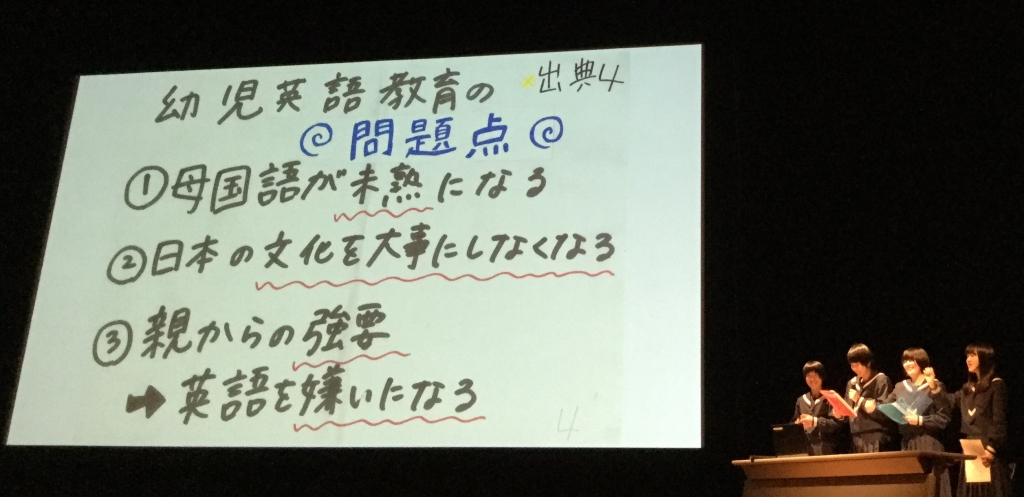 幼児英語教育の
出典4
問題点
①母国語が未熟になる
②日本の文化を大事にしなくなる
③親からの強要
➡英語を嫌いになる
4